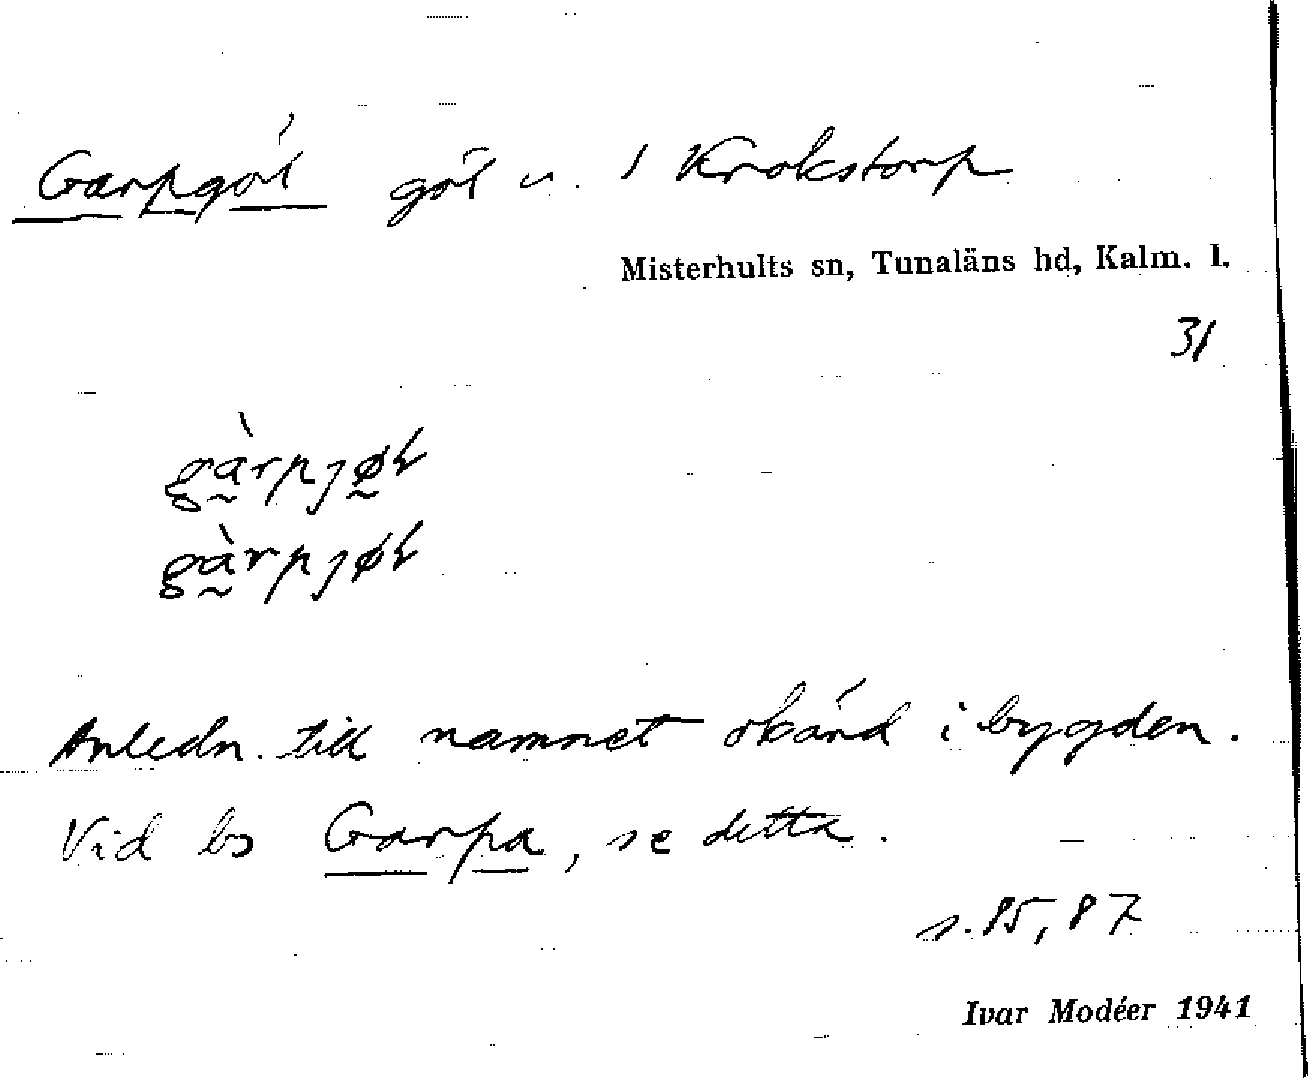 Garpgöl göl u. / Krokstorp
Misterhults sn, Tunaläns hd, Kalm. l.
31
gàrpjøł
gàrpjøł
Anledn. till namnet okänd i bygden.
Vid bs Garpa, se detta.
s. 85, 87
Ivar Modéer 1941